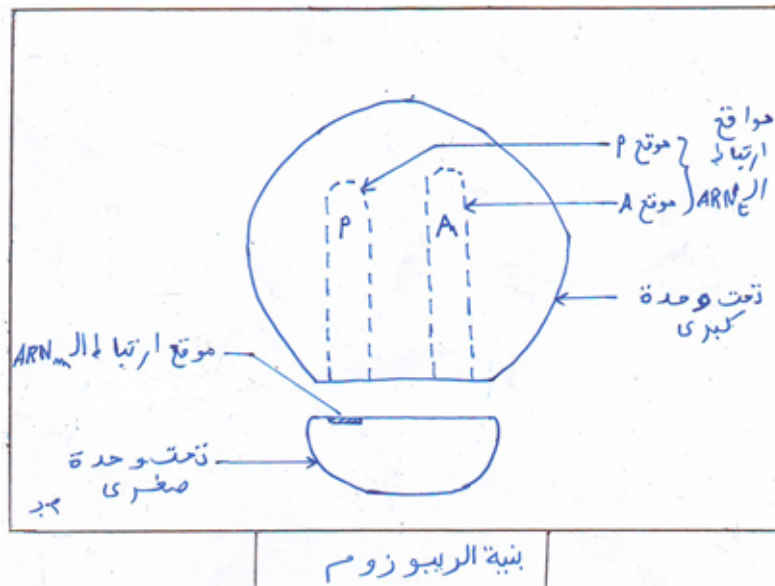 مواقع
ارتباط
الـ ARNt
موقع P
موقع A
P
A
تحت وحدة
كبرى
موقع ارتباط الـ ARNm
تحت وحدة
صغرى
بنية الريبوزوم